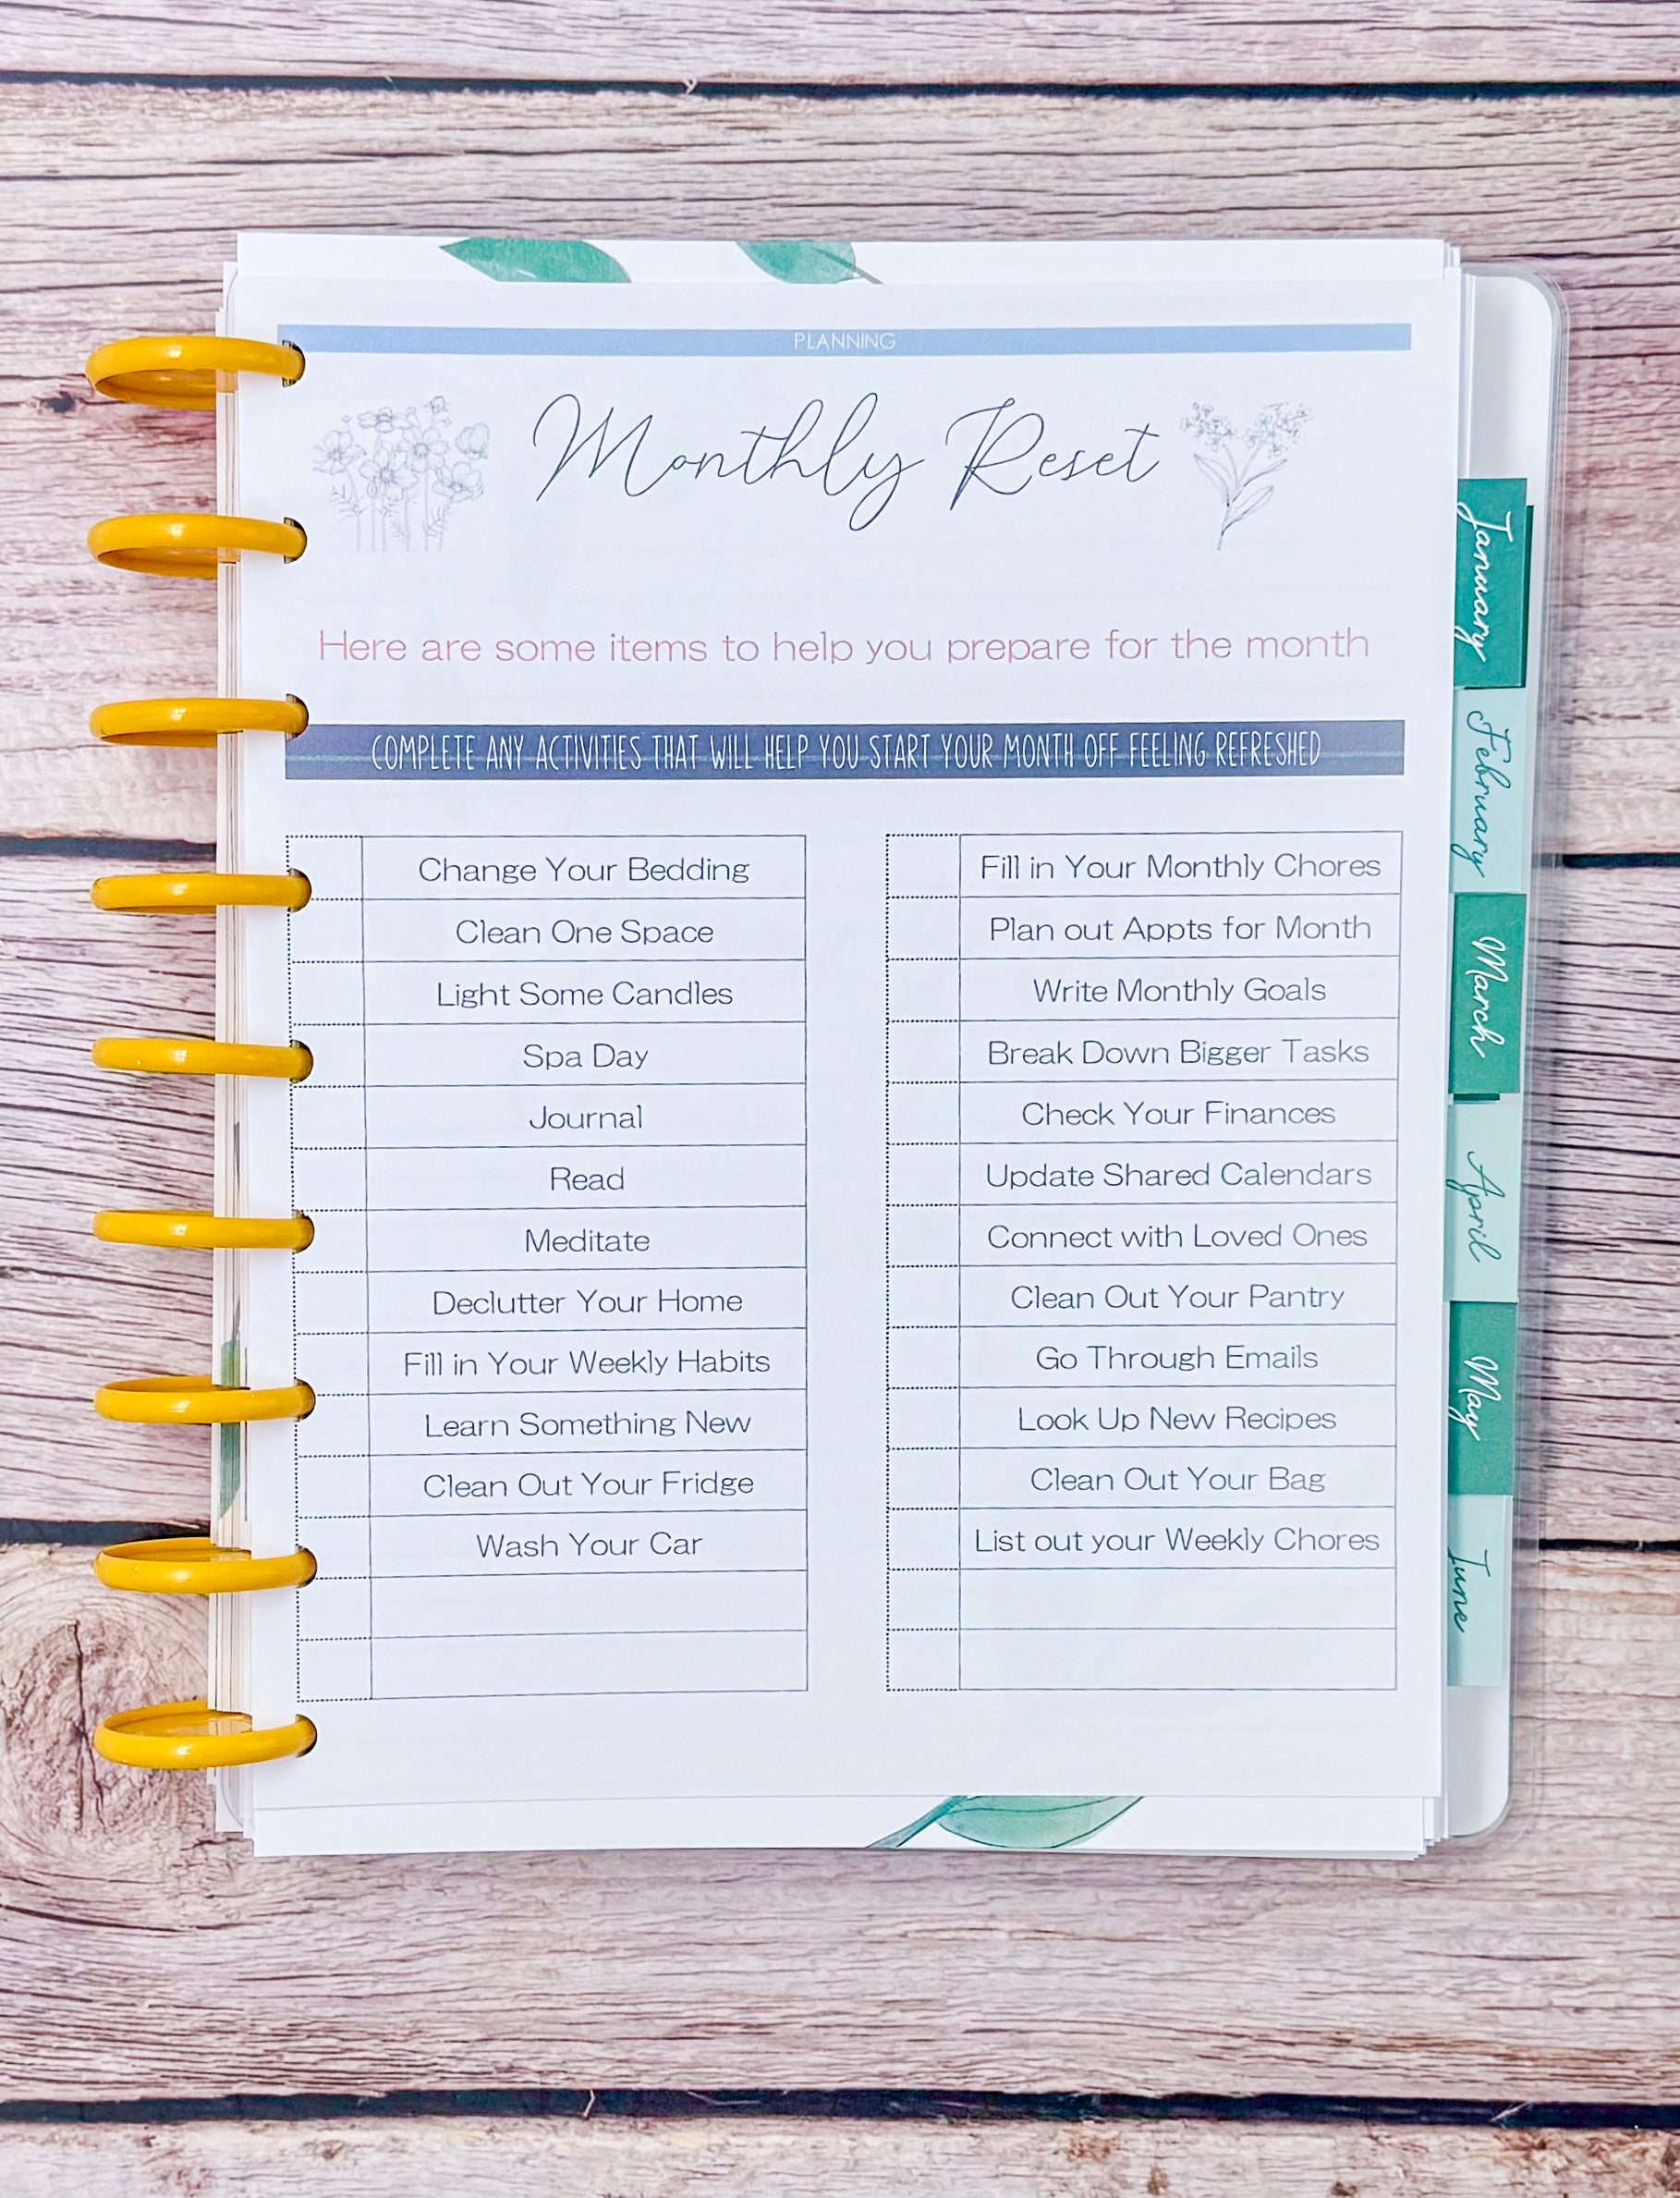 PLANNING
Monthly Reset
Here are some items to help you prepare for the month
COMPLETE ANY ACTIVITIES THAT WILL HELP YOU START YOUR MONTH OFF FEELING REFRESHED
Change Your Bedding
Clean One Space
Light Some Candles
Spa Day
Journal
Read
Meditate
Declutter Your Home
Fill in Your Weekly Habits
Learn Something New
Clean Out Your Fridge
Wash Your Car
Fill in Your Monthly Chores
Plan out Appts for Month
Write Monthly Goals
Break Down Bigger Tasks
Check Your Finances
Update Shared Calendars
Connect with Loved Ones
Clean Out Your Pantry
Go Through Emails
Look Up New Recipes
Clean Out Your Bag
List out your Weekly Chores
January
February
March
April
May
June